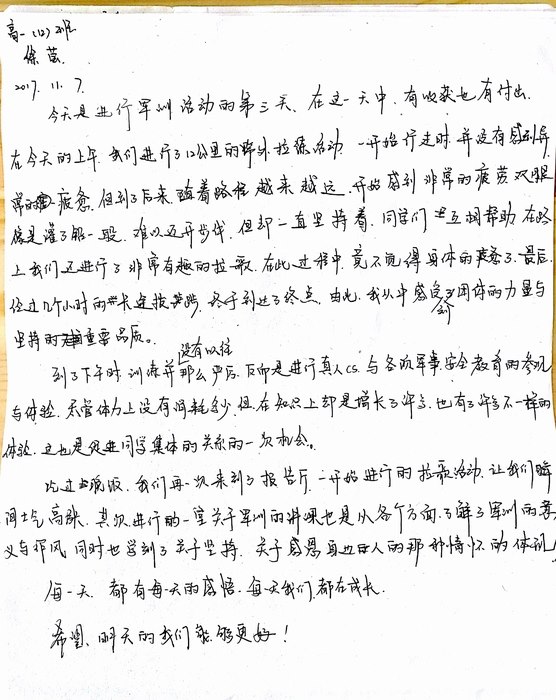 高一(12)班
徐萤
2017. 11. 7.
今天是进行军训活动的第三天、在这一天中、有收获也有付出.
在今天的上午 我们进行了12公里的野外拉练活动. 一开始行走时 并没有感到异
常的疲惫. 但到了后来 随着路程越来越远. 开始感到非常的疲劳 双腿
像是灌了铅一般. 难以迈开步伐. 但却一直坚持着. 同学们互相帮助 在路
上我们还进行了非常有趣的拉歌. 在此过程中. 竟不觉得身体的疲惫了. 最后.
经过几个小时的长途拔涉. 终于到达了终点. 由此. 我从中感受到团体的力量与
坚持的重要品质。
到了下午时 训练并没有以往那么严厉. 反而是进行真人cs. 与各项军事安全教育的参观
与体验. 尽管体力上没有消耗多少. 但在知识上却是增长了许多. 也有了许多不一样的
体验. 这也是促进同学集体的关系的一次机会。
吃过晚饭. 我们再一次来到了报告厅. 一开始进行的拉歌活动. 让我们瞬
间士气高涨. 其次进行的一堂关于军训的讲课也是从各个方面了解了军训的意
义与作风. 同时也学到了关于坚持. 关于感恩身边的人的那种情怀的体现
每一天. 都有每一天的感悟. 每天我们都在成长.
希望、明天的我们能够更好!